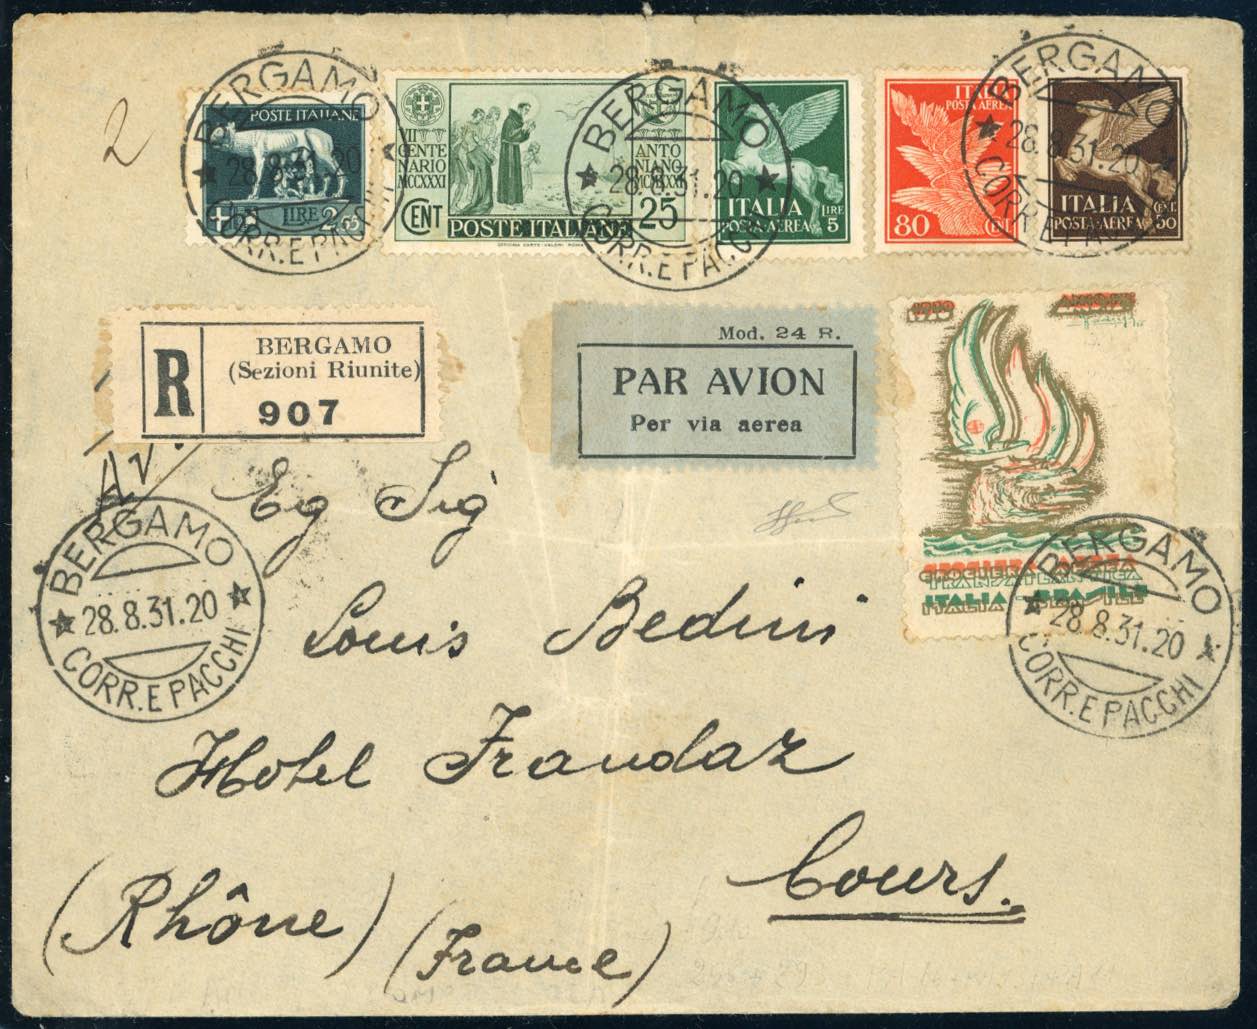 2
POSTE ITALIANE
LIRE 2,55
VII CENTENARIO MCCXXXI
ANTONIANO MCMXXXI
CENT 25
POSTE ITALIANE
OFFICINA CARTE-VALORI ROMA
ITALIA LIRE
POSTA-AEREA 5
POSTA AEREA
80 CENT.
ITALIA CENT.
POSTA-AEREA 50
BERGAMO
28.8.31.20
CORR. E PACCHI
BERGAMO
28.8.31.20
CORR. E PACCHI
BERGAMO
28.8.31.20
CORR. E PACCHI
R
BERGAMO
(Sezioni Riunite)
907
Mod. 24 R.
PAR AVION
Per via aerea
CROCIERA AEREA
TRANSATLANTICA
ITALIA - BRASILE
Eg Sig
BERGAMO
28.8.31.20
CORR. E PACCHI
BERGAMO
28.8.31.20
CORR. E PACCHI
Louis Bedini
Hotel Frandaz
Cours.
(Rhône) (France)